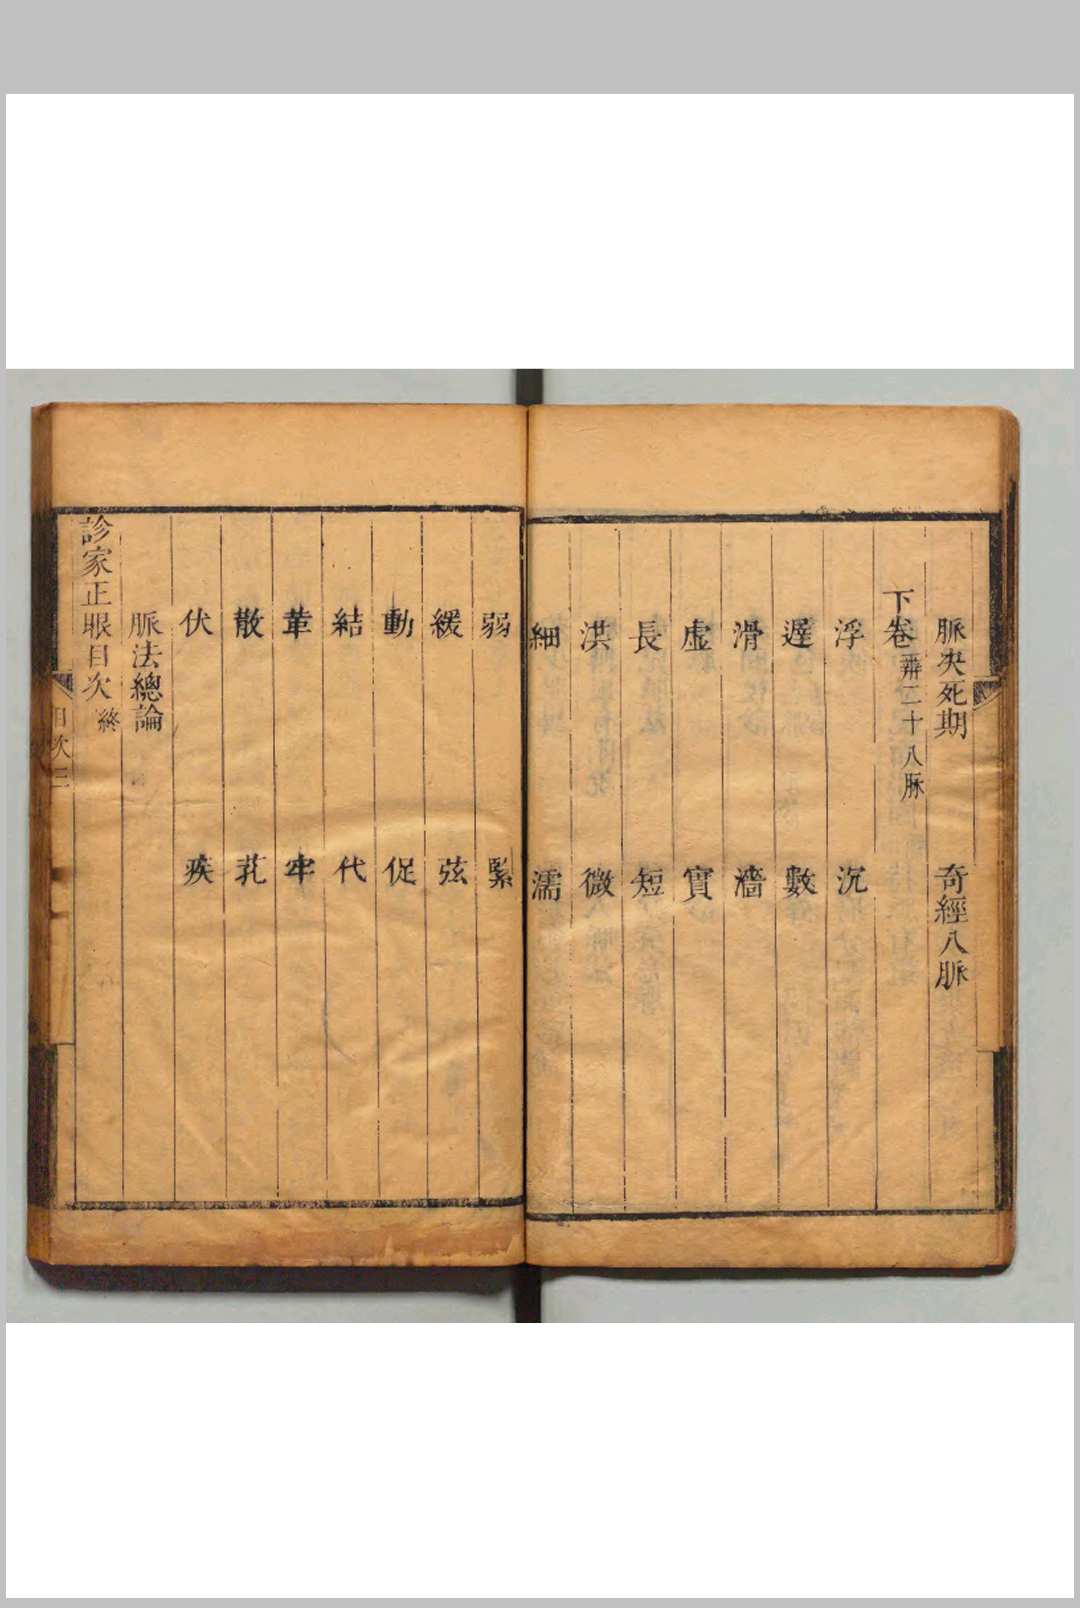 脈决死期　奇經八脈
下卷 辨二十八脉
浮　沉
遲　數
滑　濇
虛　實
長　短
洪　微
細　濡
弱　緊
緩　弦
動　促
結　代
革　牢
散　芤
伏　疾
脈法總論
診家正眼目次 終
目次 三